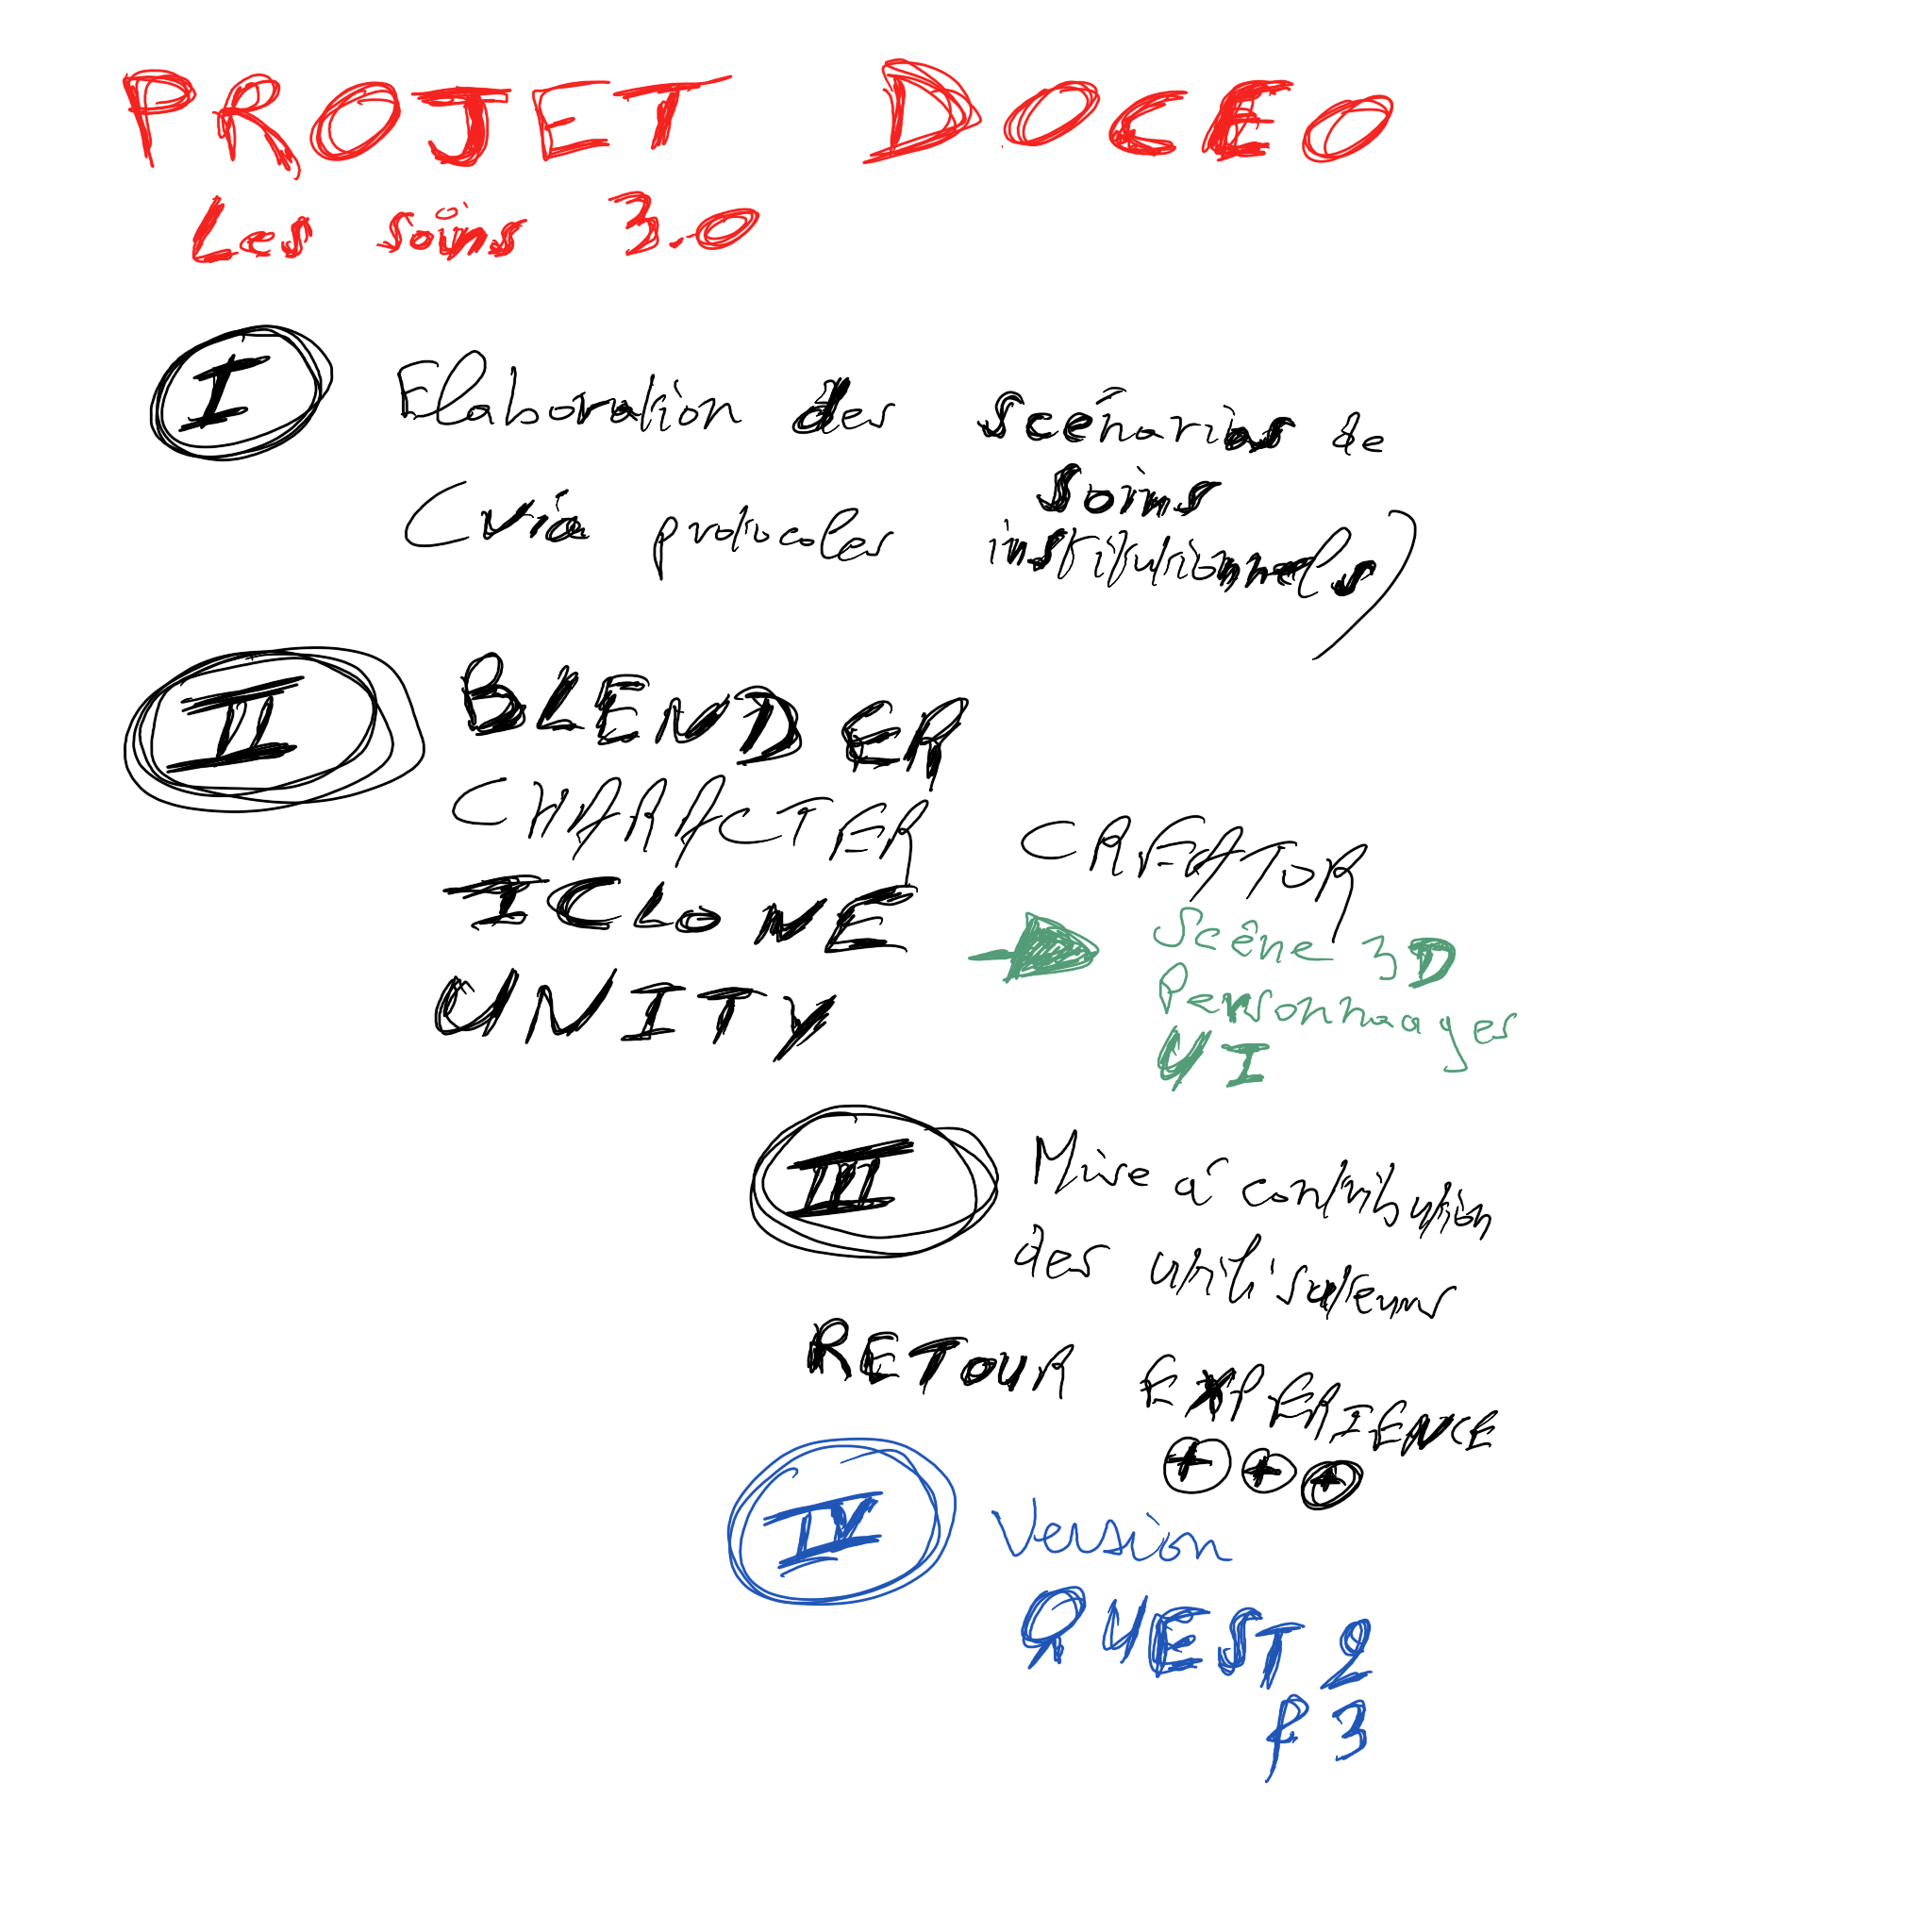 PROJET DOCEO
Les soins 3.0
I Elaboration des scénarios de
soins
(via protocoles institutionnels)
II BLENDER
CHARACTER CREATOR
ICLONE
Scène 3D
Personnages
UNITY
UI
III Mise à contribution
des utilisateurs
RETOUR EXPERIENCE
+ + +
IV Version
QUEST 2
& 3